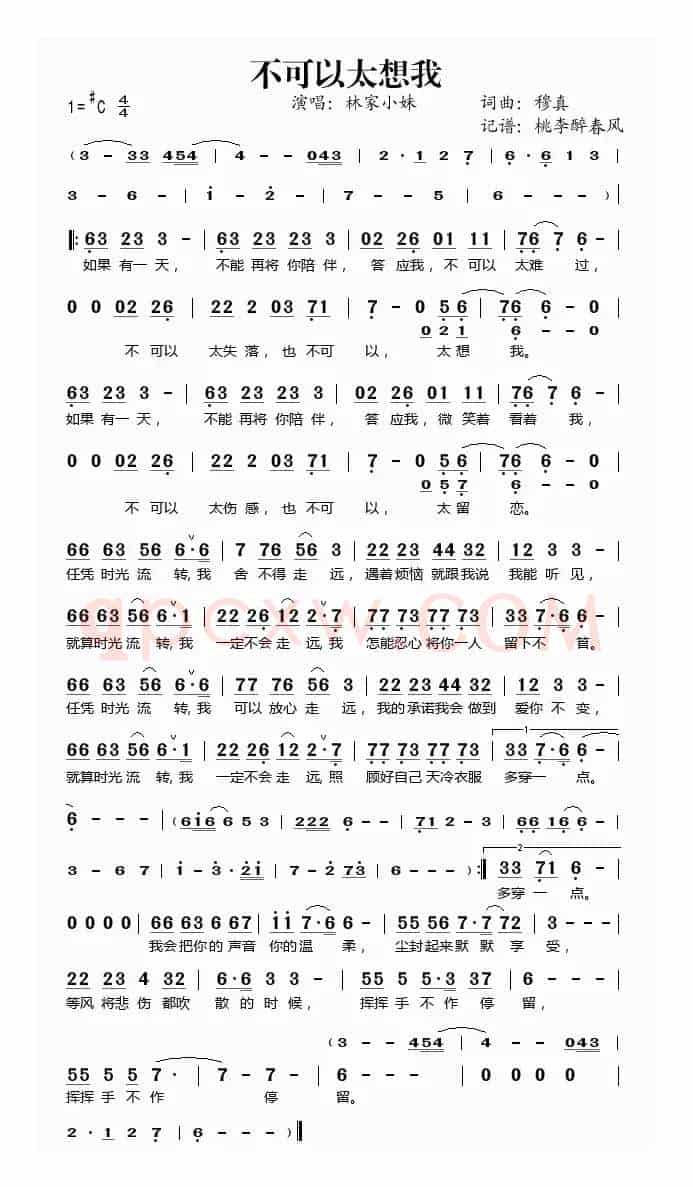 不可以太想我
1=#C 4/4 演唱：林家小妹 词曲：穆真
记谱：桃李醉春风
(3 - 33 454 | 4 - - 043 | 2 · 1 2 7 | 6 · 6 1 3 |
3 - 6 - | i - 2 - | 7 - 5 - | 6 - - - ) |
‖: 63 23 3 - | 63 23 23 3 | 02 26 01 11 | 76 7 6 - |
如果 有一 天， 不能 再将 你陪 伴， 答 应我，不 可以 太难 过，
0 0 02 26 | 22 2 03 71 | 7 - 0 56 | 76 6 - 0 |
021 6 - - 0
不 可以 太失 落，也 不可 以， 太 想 我。
63 23 3 - | 63 23 23 3 | 02 26 01 11 | 76 7 6 - |
如果 有一 天， 不能 再将 你陪 伴， 答 应我，微 笑着 看着 我，
0 0 02 26 | 22 2 03 71 | 7 - 0 56 | 76 6 - 0 |
057 6 - - 0
不 可以 太伤 感，也 不可 以， 太 留 恋。
66 63 56 6·6 | 7 76 56 3 | 22 23 44 32 | 12 3 3 - |
任凭 时光 流 转,我 舍 不得 走 远，遇着 烦恼 就跟 我说 我能 听 见，
66 63 56 6·1 | 22 26 12 2·7 | 77 73 77 73 | 33 7·6 6 - |
就算 时光 流 转,我 一定 不会 走 远,我 怎能 忍心 将你 一人 留下 不 管。
qpcxw.COM
66 63 56 6·6 | 77 76 56 3 | 22 23 44 32 | 12 3 3 - |
任凭 时光 流 转,我 可以 放心 走 远，我的 承诺 我会 做到 爱你 不 变，
66 63 56 6·1 | 22 26 12 2·7 | 77 73 77 73 | 1 33 7·6 6 - |
就算 时光 流 转,我 一定 不会 走 远,照 顾好 自己 天冷 衣服 多穿 一 点。
6 - - - | (616 6 5 3 | 222 6 - - | 71 2 - 3 | 66 16 6 - |
3 - 6 7 | i - 3 · 2i | 7 - 2 73 | 6 - - - ) :‖ 2 33 71 6 - |
多穿 一 点。
0 0 0 0 | 66 63 6 67 | ii 7·6 6 - | 55 56 7·7 72 | 3 - - - |
我会 把你 的 声音 你的 温 柔， 尘封 起来 默 默 享 受，
22 23 4 32 | 6·6 3 3 - | 55 5 5·3 37 | 6 - - - |
等风 将悲 伤 都吹 散 的 时 候， 挥挥 手 不 作 停 留，
(3 - - 454 | 4 - - 043 |
55 5 5 7 · | 7 - 7 - | 6 - - - | 0 0 0 0 |
挥挥 手 不 作 停 留。
2 · 1 2 7 | 6 - - - ) ‖